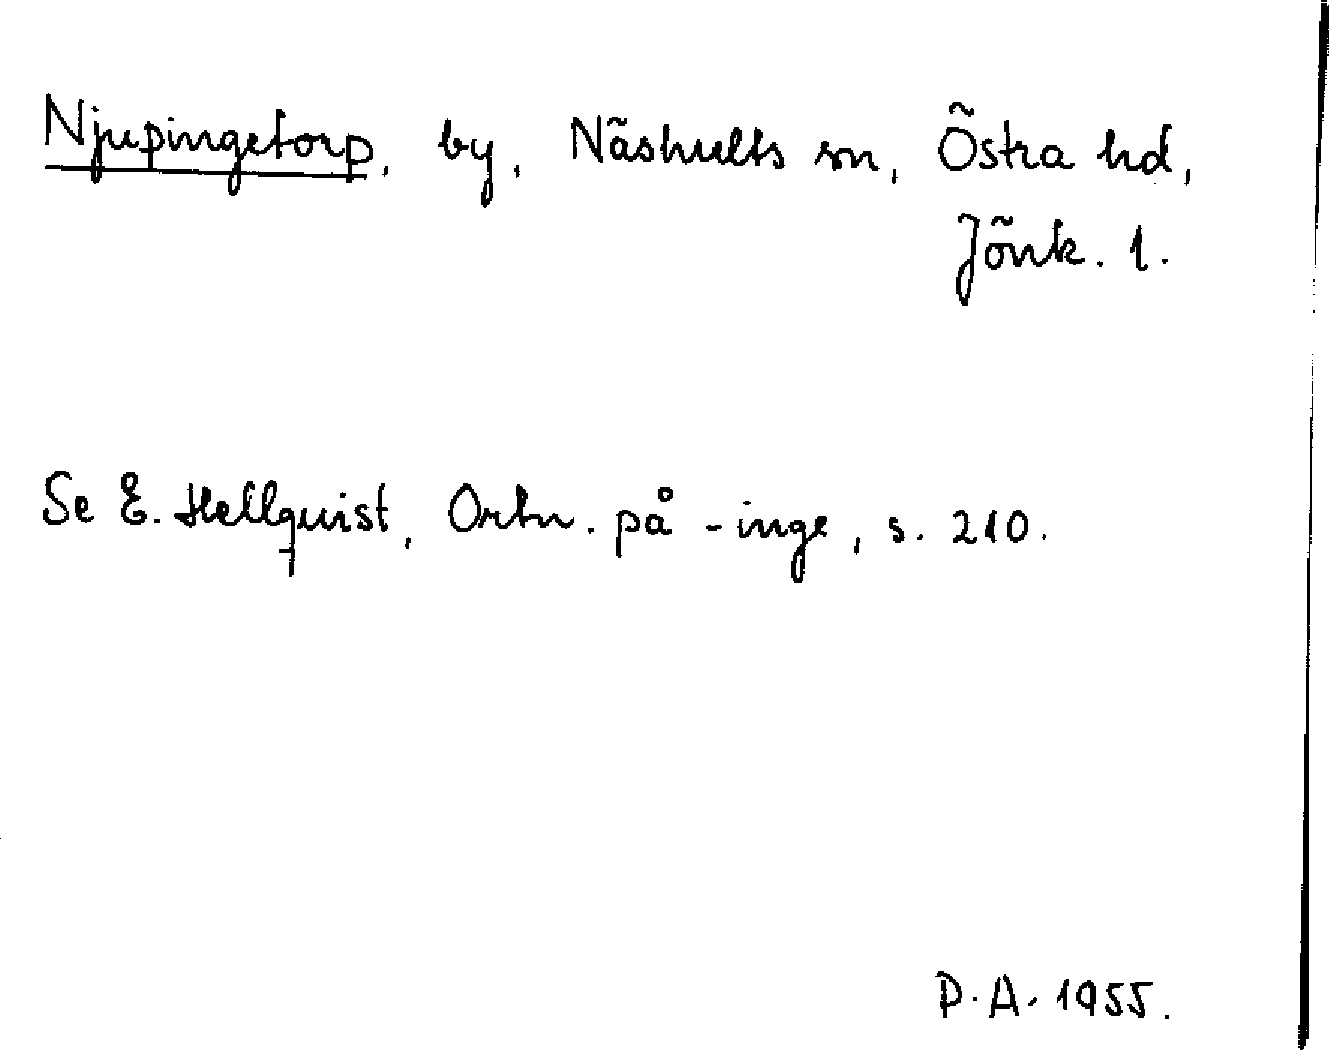 Njupingetorp, by, Näshults sn, Östra hd,
Jönk. l.
Se E. Hellquist, Ortn. på -inge, s. 210.
P.A. 1955.